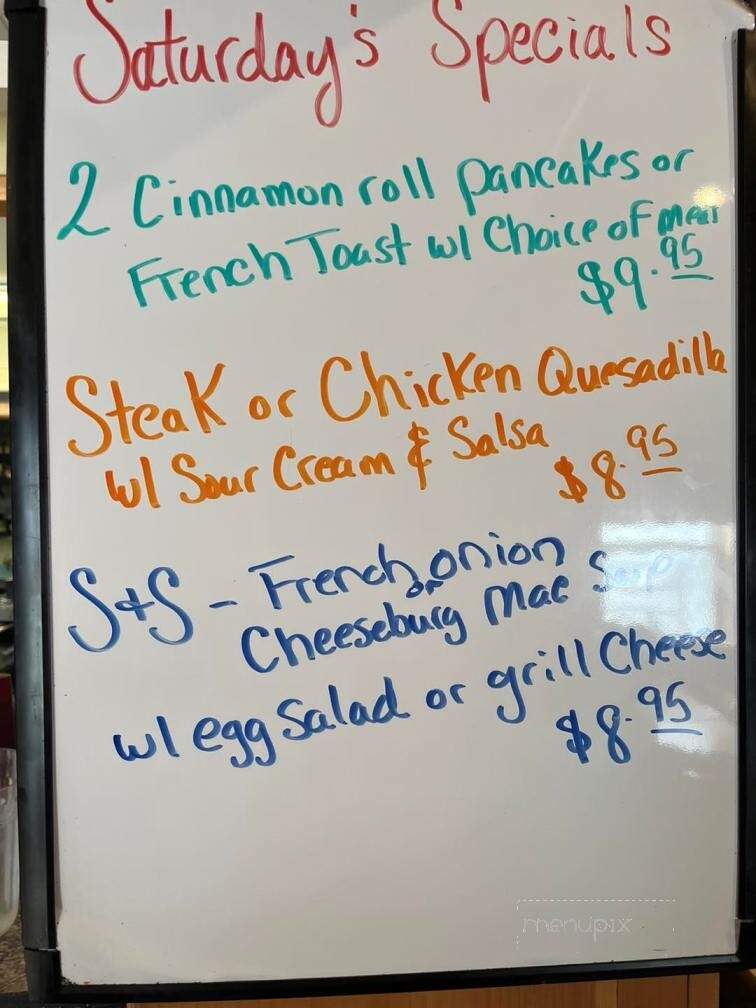 Saturday's Specials
2 Cinnamon roll pancakes or
French Toast w/ Choice of meat
$9.95
Steak or Chicken Quesadilla
w/ Sour Cream & Salsa
$8.95
S+S - French onion
or
Cheeseburg Mac Soup
w/ egg Salad or grill Cheese
$8.95
menupix